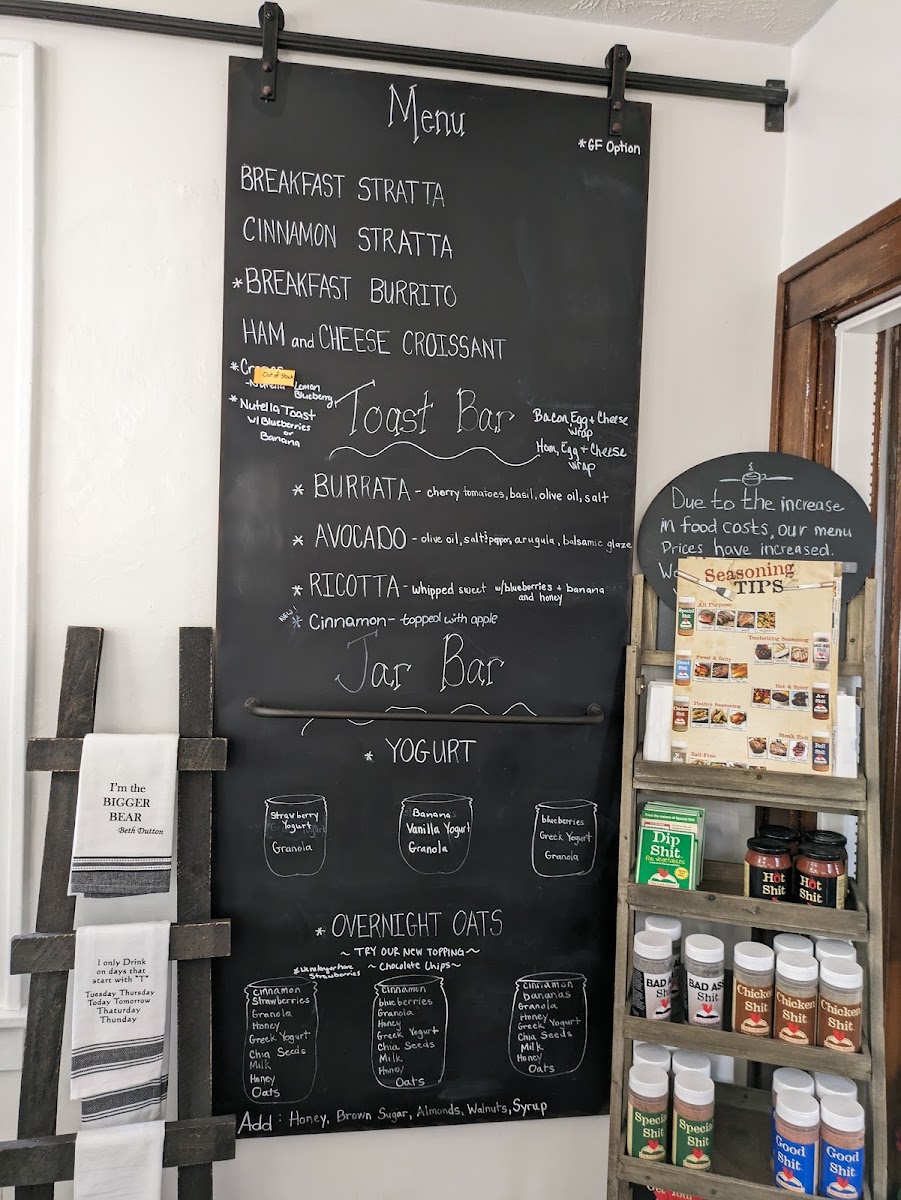 Menu
*GF Option
BREAKFAST STRATTA
CINNAMON STRATTA
*BREAKFAST BURRITO
HAM and CHEESE CROISSANT
*
Out of Stock
Lemon
Blueberry
* Nutella Toast
w/Blueberries
or
Banana
Toast Bar
Bacon, Egg + Cheese
wrap
Ham, Egg + Cheese
wrap
* BURRATA - cherry tomatoes, basil, olive oil, salt
* AVOCADO - olive oil, salt & pepper, arugula, balsamic glaze
* RICOTTA - whipped sweet w/blueberries + banana
and honey
NEW!
* Cinnamon - topped with apple
Jar Bar
* YOGURT
Strawberry
Yogurt
Granola
Banana
Vanilla Yogurt
Granola
blueberries
Greek Yogurt
Granola
* OVERNIGHT OATS
~ TRY OUR NEW TOPPING ~
~ Chocolate Chips ~
Strawberries
Cinnamon
Strawberries
Granola
Honey
Greek Yogurt
Chia Seeds
Milk
Honey
Oats
Cinnamon
blueberries
Granola
Honey
Greek Yogurt
Chia Seeds
Milk
Honey
Oats
Cinnamon
bananas
Granola
Honey
Greek Yogurt
Chia Seeds
Milk
Honey
Oats
Add: Honey, Brown Sugar, Almonds, Walnuts, Syrup
I'm the
BIGGER
BEAR
Beth Dutton
I only Drink
on days that
start with "T"
Tuesday Thursday
Today Tomorrow
Thaturday
Thunday
Due to the increase
in food costs, our menu
Prices have increased.
Seasoning
TIPS
All Purpose
Tenderizing Seasoning
Sweet & Salty
Hot & Spicy
Poultry Seasoning
Steak Rub
Salt-Free
Dip
Shit
for vegetables
Hot
Shit
Hot
Shit
BAD ASS
Shit
BAD ASS
Shit
Chicken
Shit
Chicken
Shit
Chicken
Shit
Special
Shit
Special
Shit
Good
Shit
Good
Shit